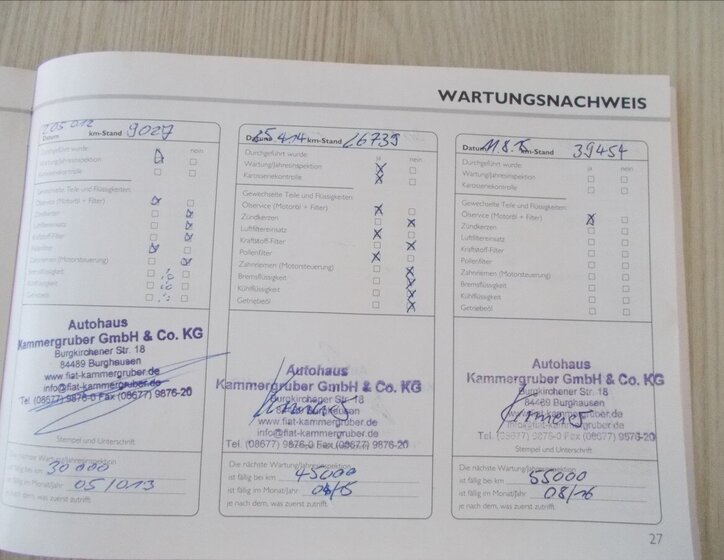 WARTUNGSNACHWEIS
Datum km-Stand 9027
Durchgeführt wurde: ja nein
Wartung/Jahresinspektion
Karosseriekontrolle
Gewechselte Teile und Flüssigkeiten:
Ölservice (Motoröl + Filter)
Zündkerzen
Luftfiltereinsatz
Kraftstoff-Filter
Pollenfilter
Zahnriemen (Motorsteuerung)
Bremsflüssigkeit
Kühlflüssigkeit
Getriebeöl
Autohaus
Kammergruber GmbH & Co. KG
Burgkirchener Str. 18
84489 Burghausen
www.fiat-kammergruber.de
info@fiat-kammergruber.de
Tel. (08677) 9876-0 Fax (08677) 9876-20
Stempel und Unterschrift
nächste Wartung/Jahresinspektion
ist fällig bei km 30000
ist fällig im Monat/Jahr 05/013
je nach dem, was zuerst zutrifft.
Datum 25.4.14 km-Stand 26739
Durchgeführt wurde: ja nein
Wartung/Jahresinspektion
Karosseriekontrolle
Gewechselte Teile und Flüssigkeiten:
Ölservice (Motoröl + Filter)
Zündkerzen
Luftfiltereinsatz
Kraftstoff-Filter
Pollenfilter
Zahnriemen (Motorsteuerung)
Bremsflüssigkeit
Kühlflüssigkeit
Getriebeöl
Autohaus
Kammergruber GmbH & Co. KG
Burgkirchener Str. 18
84489 Burghausen
www.fiat-kammergruber.de
info@fiat-kammergruber.de
Tel. (08677) 9876-0 Fax (08677) 9876-20
Die nächste Wartung/Jahresinspektion
ist fällig bei km 45000
ist fällig im Monat/Jahr 04/15
je nach dem, was zuerst zutrifft.
Datum 11.8.15 km-Stand 39454
Durchgeführt wurde: ja nein
Wartung/Jahresinspektion
Karosseriekontrolle
Gewechselte Teile und Flüssigkeiten:
Ölservice (Motoröl + Filter)
Zündkerzen
Luftfiltereinsatz
Kraftstoff-Filter
Pollenfilter
Zahnriemen (Motorsteuerung)
Bremsflüssigkeit
Kühlflüssigkeit
Getriebeöl
Autohaus
Kammergruber GmbH & Co. KG
Burgkirchener Str. 18
84489 Burghausen
www.fiat-kammergruber.de
info@fiat-kammergruber.de
Tel. (08677) 9876-0 Fax (08677) 9876-20
Stempel und Unterschrift
Die nächste Wartung/Jahresinspektion
ist fällig bei km 55000
ist fällig im Monat/Jahr 08/16
je nach dem, was zuerst zutrifft.
27